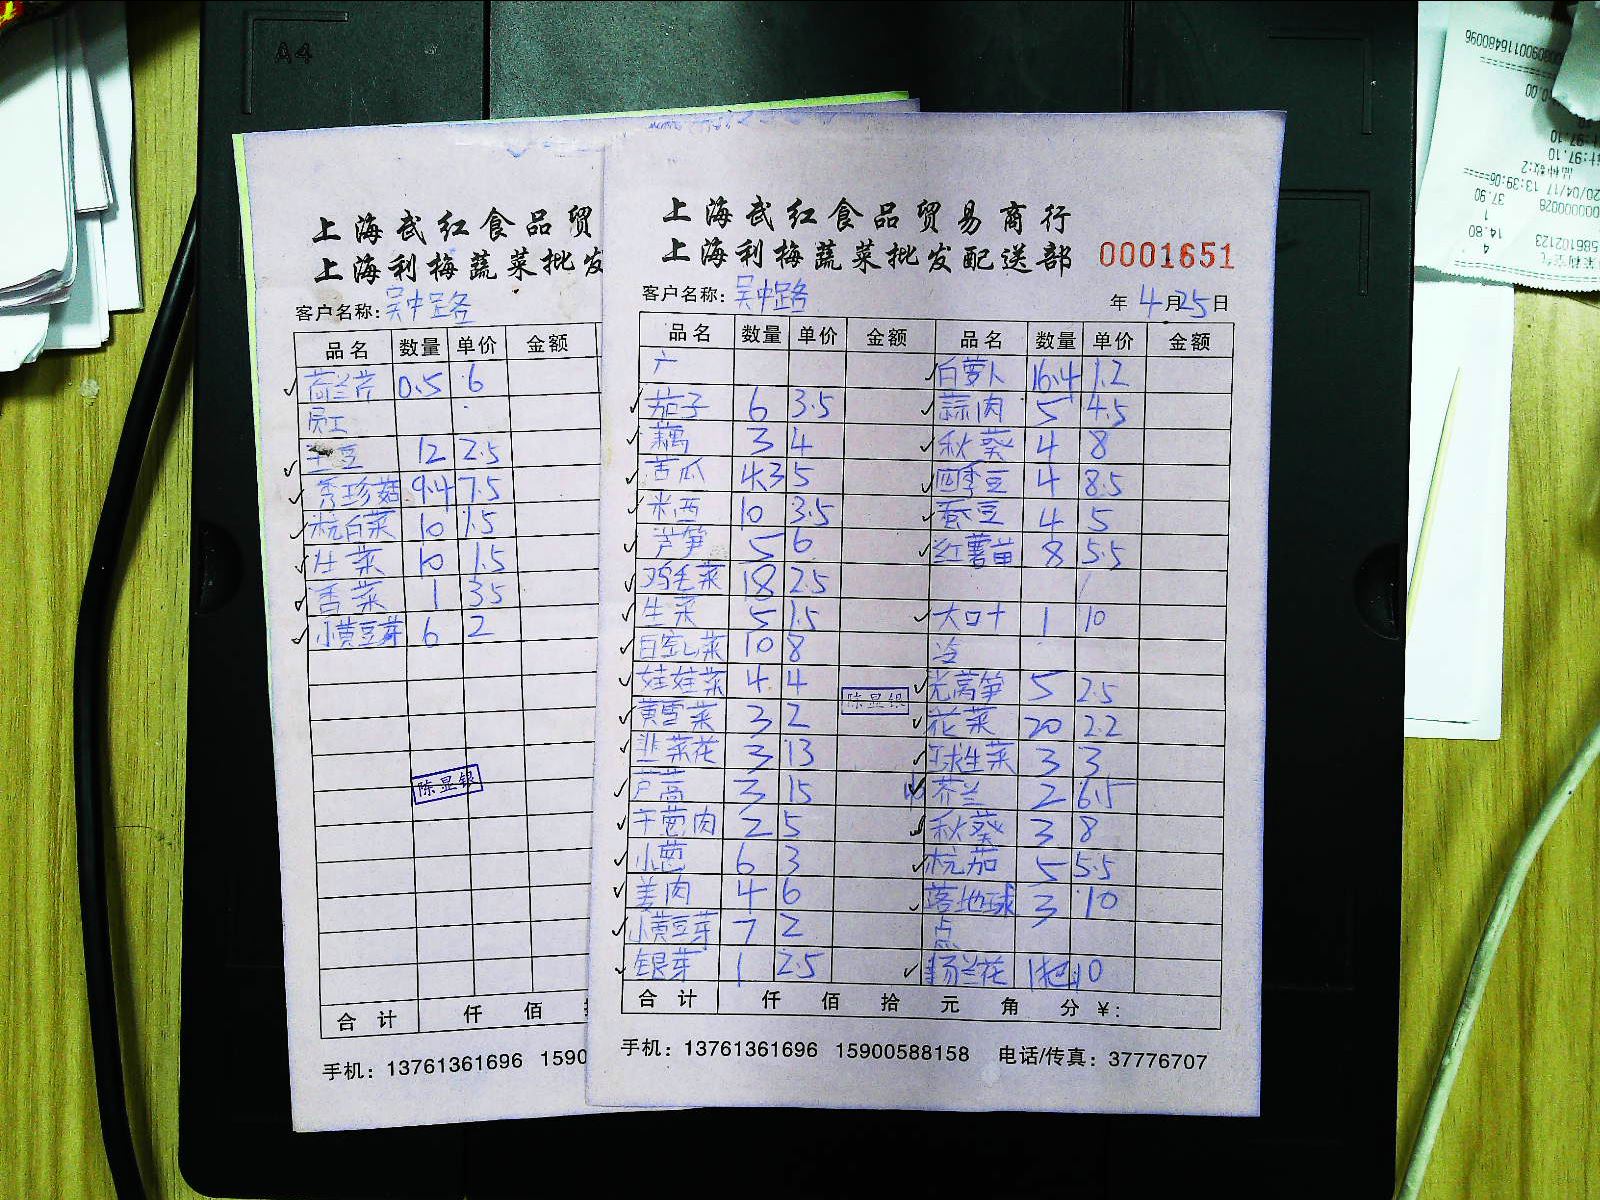 A4
上海武红食品贸
上海利梅蔬菜批发
客户名称: 吴中路
品名 数量 单价 金额
荷兰芹 0.5 6
员工
土豆 12 2.5
秀珍菇 9.4 7.5
杭白菜 10 1.5
生菜 10 1.5
香菜 1 35
小黄豆芽 6 2
陈显银
合计 仟 佰
手机: 13761361696 1590
上海武红食品贸易商行
上海利梅蔬菜批发配送部 0001651
客户名称: 吴中路 年 4月25日
品名 数量 单价 金额 品名 数量 单价 金额
白萝卜 16.4 1.2
茄子 6 3.5 蒜肉 5 4.5
藕 3 4 秋葵 4 8
苦瓜 4.3 5 四季豆 4 8.5
米西 10 3.5 蚕豆 4 5
芦笋 5 6 红薯苗 8 5.5
鸡毛菜 18 2.5
生菜 5 1.5 大口十 1 10
10 8 冷
娃娃菜 4 4 光莴笋 5 2.5
陈显银
黄雪菜 3 2 花菜 20 2.2
韭菜花 3 13 球生菜 3 3
芦蒿 3 15 芥兰 2 6.5
干葱肉 2 5 秋葵 3 8
小葱 6 3 杭茄 5 5.5
姜肉 4 6 落地球 3 10
小黄豆芽 7 2 点
银芽 1 2.5 杨兰花 1把 10
合计 仟 佰 拾 元 角 分 ¥:
手机: 13761361696 15900588158 电话/传真: 37776707
计:97.10
品种数:2
20/04/17 13:39:06
37.90
1
14.80
4